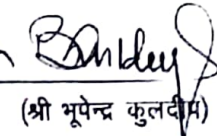 (श्री भूपेन्द्र कुलदीप)